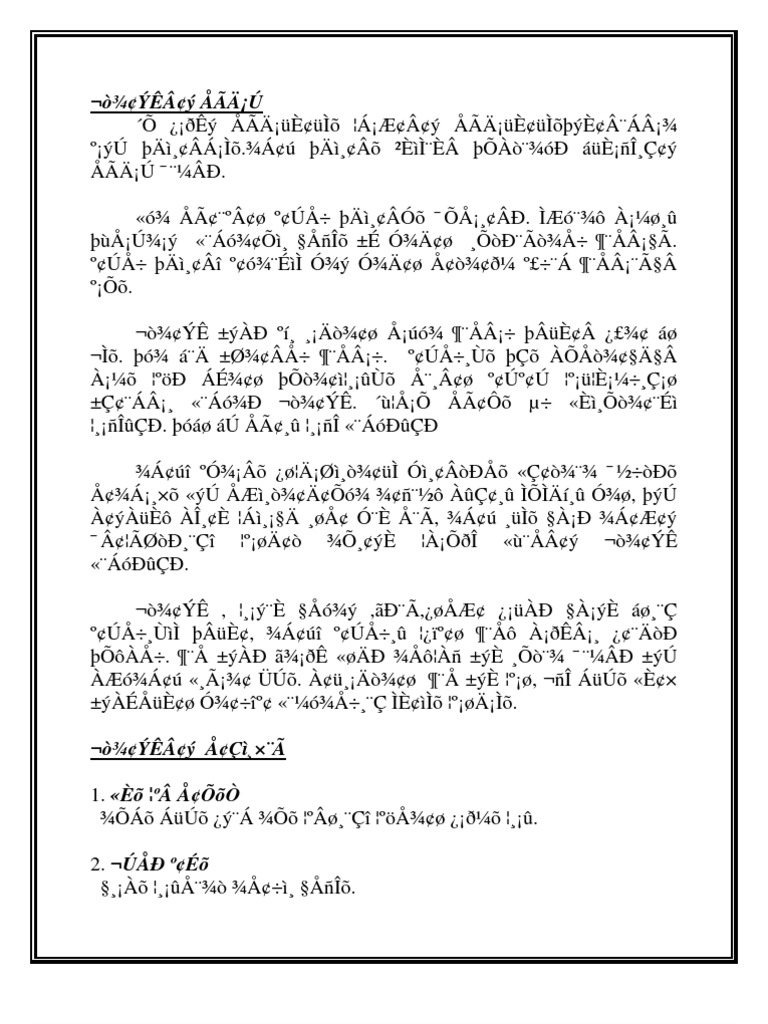 ¬ò¾¢ÝÊÂ¢ý ÅÃÄ¡Ú
´Õ ¿¡¡ðÊý ÅÃÄ¡üÈ¢üÌõ ¦Á¡Æ¢Â¢ý ÅÃÄ¡üÈ¢üÌõþýÈ¢Â¨ÁÂ¡¾
º¡ýÚ þÄì¸¢ÂÁ¡Ìõ.¾Á¢ú þÄì¸¢Âõ ²ÈìÌ¨ÈÂ þÕÀò¨¾óÐ áüÈ¡ñÎ¸Ç¢ý
ÅÃÄ¡Ú ¯¨¼ÂÐ.
«ó¾ ÅÃ¢¨ºÂ¢ø º¢ÚÅ÷ þÄì¸¢ÂÓõ ¯ÕÅ¡¸¢ÂÐ. ÌÆó¨¾ô À¡¼ø¸û
þùÅ¡Ú¾¡ý «¨Áó¾¢Õì¸ §ÅñÎõ ±É Ó¾Ä¢ø ¸ÕòÐ¨Ãò¾Å÷ ¶¨ÅÂ¡§Ã.
º¢ÚÅ÷ þÄì¸¢Âî º¢ó¾¨ÉìÌ Ó¾ý Ó¾Ä¢ø Å¢ò¾¢ð¼ º£÷¨Á ¶¨ÅÂ¡¨Ã§Â
º¡Õõ.
¬ò¾¢ÝÊ ±ýÀÐ ºí¸ ¸¡Äò¾¢ø Å¡úó¾ ¶¨ÅÂ¡÷ þÂüÈ¢Â ¿£¾¢ áø
¬Ìõ. þó¾ á¨Ä ±Ø¾¢ÂÅ÷ ¶¨ÅÂ¡÷. º¢ÚÅ÷¸Ùõ þÇõ ÀÕÅò¾¢§Ä§Â
À¡¼õ ¦ºöÐ ÁÉ¾¢ø þÕò¾¢ì¦¸¡ûÙõ Å¨¸Â¢ø º¢Úº¢Ú ¦º¡ü¦È¡¼÷¸Ç¡ø
±Ç¢¨ÁÂ¡¸ «¨Áó¾Ð ¬ò¾¢ÝÊ. ´ù¦Å¡Õ ÅÃ¢Ôõ µ÷ «Èì¸Õò¾¢¨Éì
¦¸¡ñÎûÇÐ. þóáø áÚ ÅÃ¢¸û ¦¸¡ñÎ «¨ÁóÐûÇÐ
¾Á¢úî ºÓ¾¡Âõ ¿¢ø¦Ä¡Øì¸ò¾¢üÌ Óì¸¢ÂòÐÅõ «Ç¢ò¨¾ ¯½÷òÐõ
Å¢¾Á¡¸×õ «ýÚ ÅÆì¸ò¾¢Ä¢Õó¾ ¾¢ñ¨½ô ÀûÇ¢¸û ÌÕÌÄí¸û Ó¾ø, þýÚ
À¢ýÀüÈô ÀÎ¸¢È ¦Áì¸¡§Ä ¸øÅ¢ Ó¨È Å¨Ã, ¾Á¢ú ¸üÌõ §À¡Ð ¾Á¢Æ¢ý
¯Â¢¦ÃØòÐ¸¨Çî ¦º¡øÄ¢ò ¾Õ¸¢ýÈ ¦À¡ÕðÎ «ù¨ÅÂ¢ý ¬ò¾¢ÝÊ
«¨ÁóÐûÇÐ.
¬ò¾¢ÝÊ , ¦¸¡ý¨È §Åó¾ý ,ãÐ¨Ã,¿øÅÆ¢ ¿¡üÀÐ §À¡ýÈ áø¨Ç
º¢ÚÅ÷¸ÙìÌ þÂüÈ¢, ¾Á¢úî º¢ÚÅ÷¸û ¦¿ïº¢ø ¶¨Åô À¡ðÊÂ¡¸ ¿¢¨ÄòÐ
þÕôÀÅ÷. ¶¨Å ±ýÀÐ ã¾¡ðÊ «øÄÐ ¾Åô¦Àñ ±ýÈ ¸Õò¨¾ ¯¨¼ÂÐ ±ýÚ
ÀÆó¾Á¢ú «¸Ã¡¾¢ ÜÚõ. À¢ü¸¡Äò¾¢ø ¶¨Å ±ýÈ ¦º¡ø, ¬ñÎ ÁüÚõ «È¢×
±ýÀÉÅüÈ¢ø Ó¾¢÷îº¢ «¨¼ó¾Å÷¸¨Ç ÌÈ¢ìÌõ ¦º¡øÄ¡Ìõ.
¬ò¾¢ÝÊÂ¢ý Å¢Çì¸×¨Ã
1. «Èõ ¦ºÂ Å¢ÕõÒ
¾ÕÁõ ÁüÚõ ¿ý¨Á ¾Õõ ¦ºÂø¸¨Çî ¦ºöÅ¾¢ø ¿¡ð¼õ ¦¸¡û.
2. ¬ÚÅÐ º¢Éõ
§¸¡Àõ ¦¸¡ûÅ¨¾ò ¾Å¢÷ì¸ §ÅñÎõ.